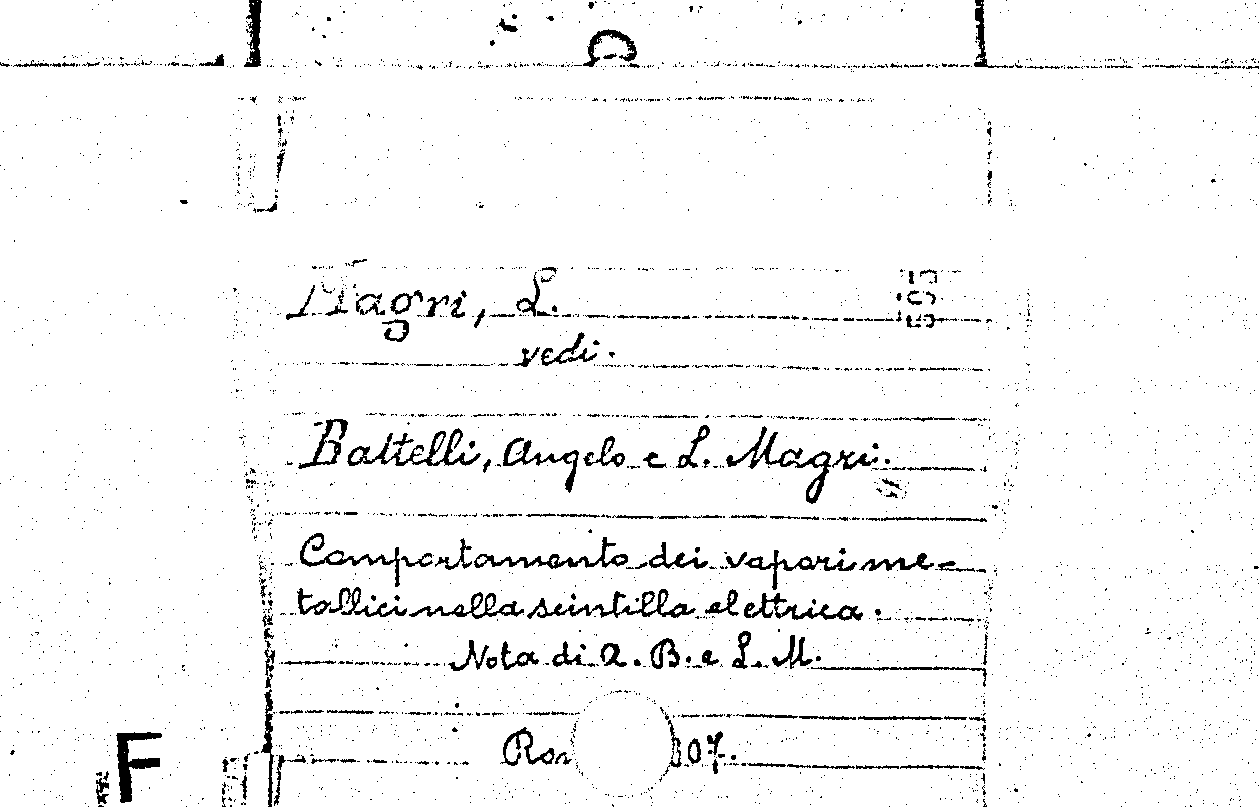 Magri, L.
vedi.
Battelli, Angelo e L. Magri.
Comportamento dei vapori me-
tallici nella scintilla elettrica.
Nota di A. B. e L. M.
F